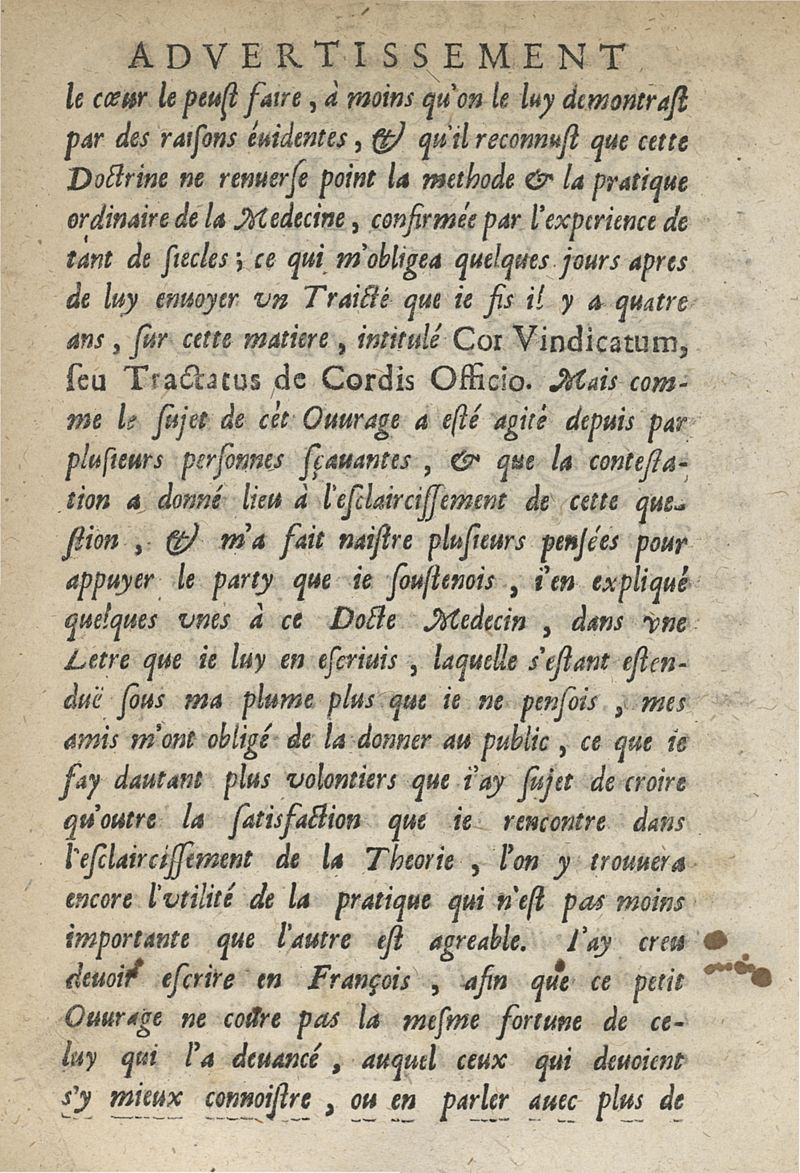 ADVERTISSEMENT
le cœur le peuſt faire, à moins qu'on le luy demontraſt
par des raiſons éuidentes, & qu'il reconnuſt que cette
Doctrine ne renuerſe point la methode & la pratique
ordinaire de la Medecine, confirmée par l'experience de
tant de ſiecles; ce qui m'obligea quelques jours apres
de luy enuoyer vn Traicté que ie fis il y a quatre
ans, ſur cette matiere, intitulé Cor Vindicatum,
ſeu Tractatus de Cordis Officio. Mais com-
me le ſujet de cét Ouurage a eſté agité depuis par
pluſieurs perſonnes ſçauantes, & que la conteſta-
tion a donné lieu à l'eſclairciſſement de cette que-
ſtion, & m'a fait naiſtre pluſieurs penſées pour
appuyer le party que ie ſouſtenois, i'en expliqué
quelques vnes à ce Docte Medecin, dans vne
Letre que ie luy en eſcriuis, laquelle s'eſtant eſten-
duë ſous ma plume plus que ie ne penſois, mes
amis m'ont obligé de la donner au public, ce que ie
fay dautant plus volontiers que i'ay ſujet de croire
qu'outre la ſatisfaction que ie rencontre dans
l'eſclairciſſement de la Theorie, l'on y trouuera
encore l'vtilité de la pratique qui n'eſt pas moins
importante que l'autre eſt agreable. I'ay creu
deuoir eſcrire en François, afin que ce petit
Ouurage ne coure pas la meſme fortune de ce-
luy qui l'a deuancé, auquel ceux qui deuoient
s'y mieux connoiſtre, ou en parler auec plus de